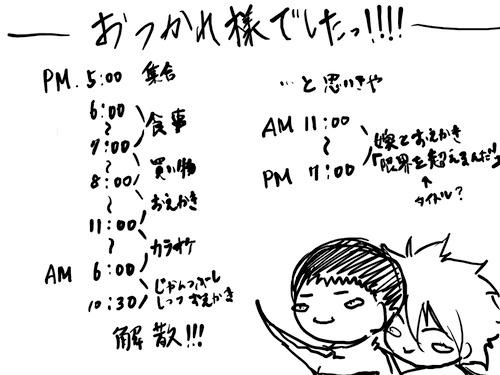 おつかれ様でしたっ!!!!
PM. 5:00 集合
6:00
〜 食事
7:00
〜 買い物
8:00
〜 おえかき
11:00
〜 カラオケ
AM 6:00
〜 じゃんつぶーし
10:30 しつつ おえかき
解散!!!
…と思いきや
AM 11:00
〜 嫁とおえかき
PM 7:00
↑
タイトル?